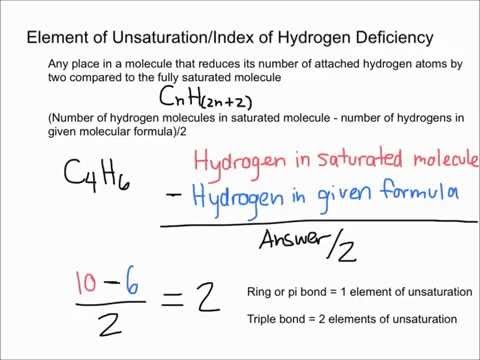 Element of Unsaturation/Index of Hydrogen Deficiency
Any place in a molecule that reduces its number of attached hydrogen atoms by
two compared to the fully saturated molecule
CnH(2n+2)
(Number of hydrogen molecules in saturated molecule - number of hydrogens in
given molecular formula)/2
C₄H₆
Hydrogen in saturated molecule
- Hydrogen in given formula
Answer/2
10 - 6
2
= 2
Ring or pi bond = 1 element of unsaturation
Triple bond = 2 elements of unsaturation